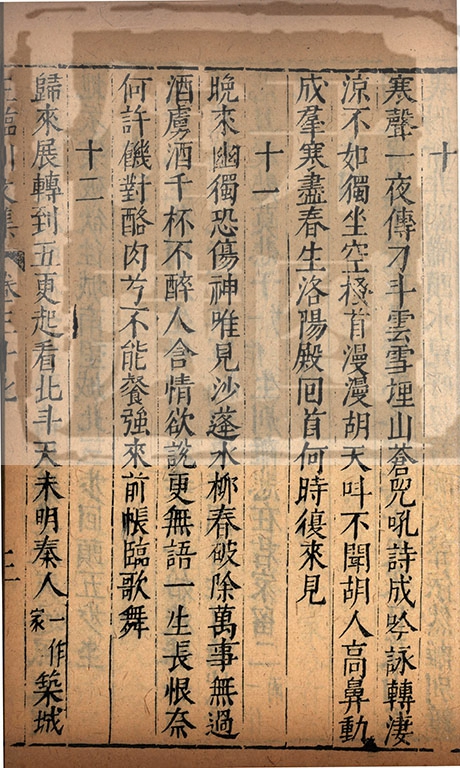 十
寒聲一夜傳刁斗雲雪埋山蒼兕吼詩成吟詠轉淒
涼不如獨坐空搔首漫漫胡天叫不聞胡人高鼻動
成羣寒盡春生洛陽殿回首何時復來見
十一
晚來幽獨恐傷神唯見沙蓬水柳春破除萬事無過
酒虜酒千杯不醉人含情欲說更無語一生長恨奈
何許饑對酪肉兮不能餐強來前帳臨歌舞
十二
歸來展轉到五更起看北斗天未明秦人一作家築城